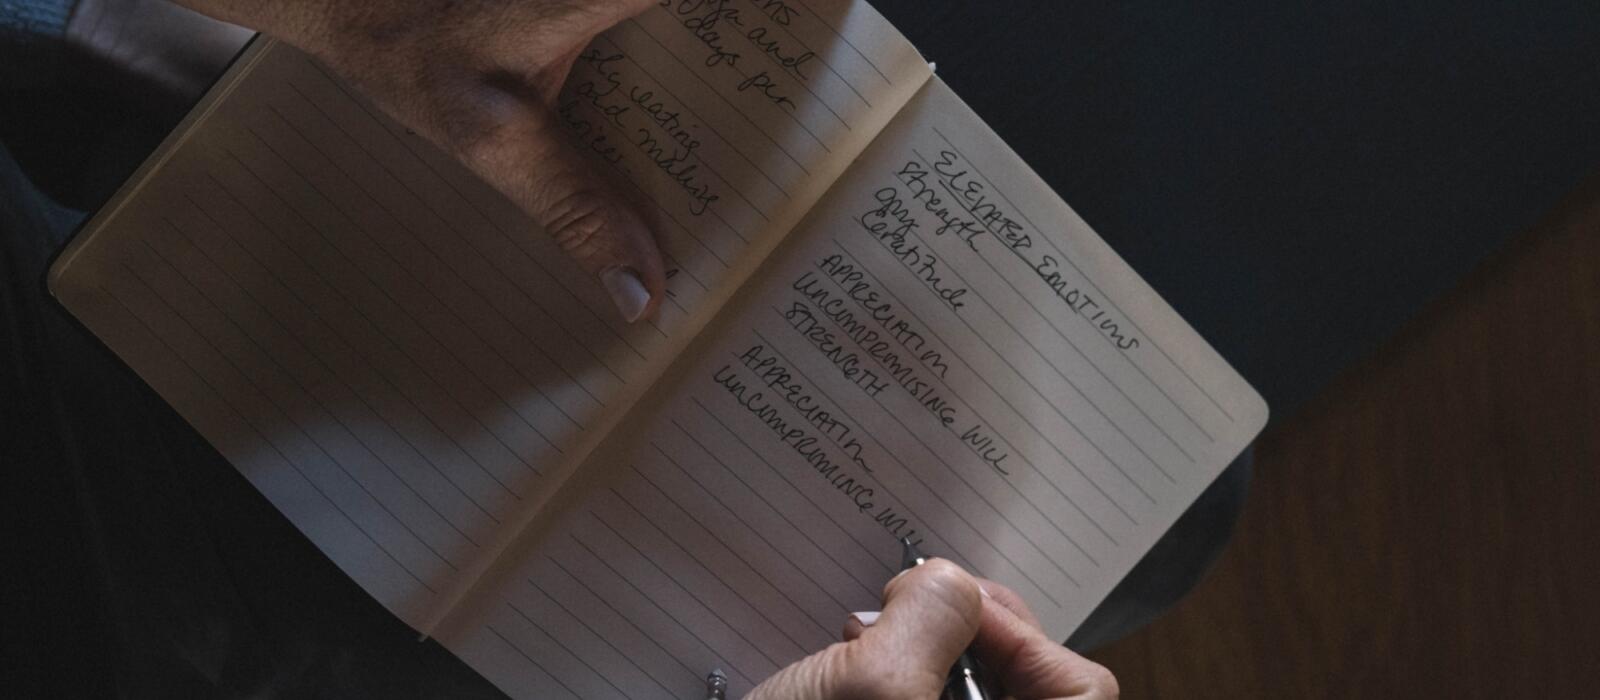 and
days per
eating
and making
ELEVATED EMOTIONS
Strength
Joy
Gratitude
APPRECIATION
UNCOMPROMISING WILL
STRENGTH
APPRECIATION
UNCOMPROMISING WILL